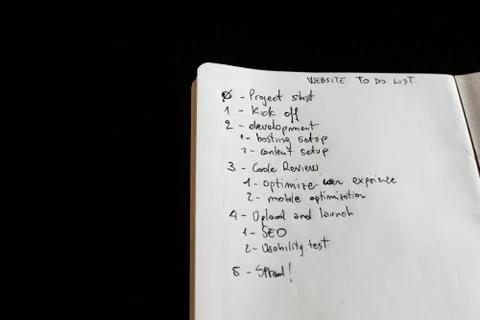 WEBSITE TO DO LIST
0 - Project start
1 - Kick off
2 - development
1 - hosting setup
2 - content setup
3 - Code Review
1 - optimize user experience
2 - mobile optimization
4 - Upload and launch
1 - SEO
2 - Usability test
5 - Spread!